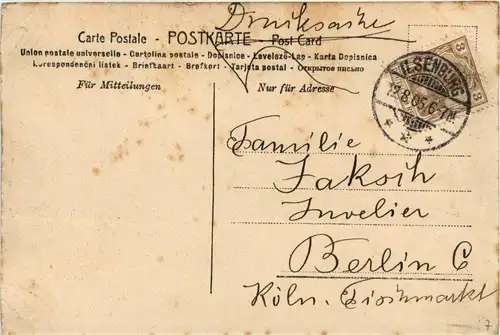 Drucksache
Carte Postale - POSTKARTE - Post Card
Union postale universelle - Cartolina postale - Dopisnice - Levelező-Lap - Karta Dopisnica
Korespondenční listek - Briefkaart - Brefkort - Tarjeta postal - Открытое письмо
Für Mitteilungen
Nur für Adresse
3
3
ILSENBURG
12.8.05.6-7N.
Familie
Jaksih
Juvelier
Berlin C
Köln. Fischmarkt